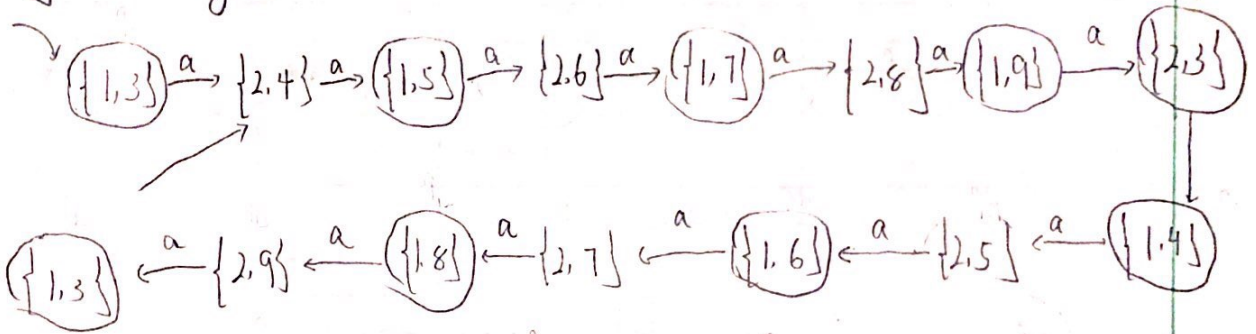 {1,3} a {2,4} a {1,5} a {2,6} a {1,7} a {2,8} a {1,9} a {2,3}
{1,3} a {2,9} a {1,8} a {2,7} a {1,6} a {2,5} a {1,4}